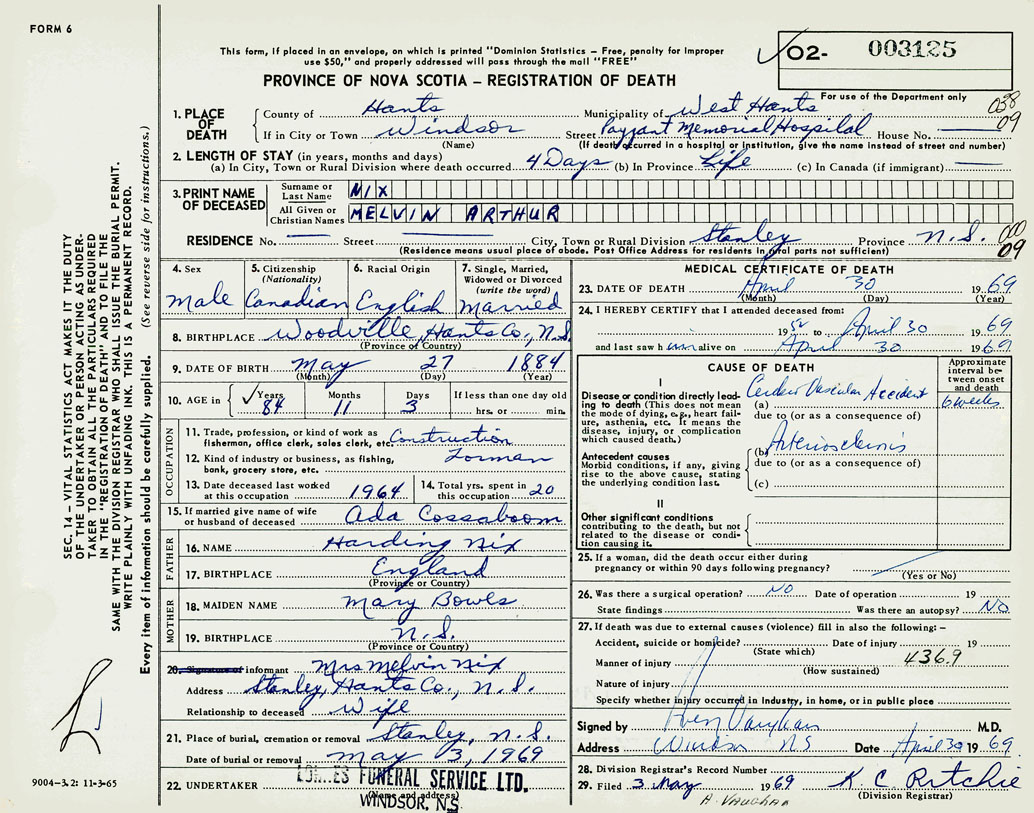 FORM 6
This form, if placed in an envelope, on which is printed "Dominion Statistics – Free, penalty for improper
use $50," and properly addressed will pass through the mail "FREE"
O2- 003125
PROVINCE OF NOVA SCOTIA – REGISTRATION OF DEATH
For use of the Department only
038
09
1. PLACE OF DEATH
County of Hants Municipality of West Hants
If in City or Town Windsor Street Payzant Memorial Hospital House No.
(Name) (If death occurred in a hospital or institution, give the name instead of street and number)
2. LENGTH OF STAY (in years, months and days)
(a) In City, Town or Rural Division where death occurred 4 Days (b) In Province Life (c) In Canada (if immigrant)
3. PRINT NAME OF DECEASED
Surname or Last Name NIX
All Given or Christian Names MELVIN ARTHUR
RESIDENCE No. Street City, Town or Rural Division Stanley Province N.S.
000
09
(Residence means usual place of abode. Post Office Address for residents in rural parts not sufficient)
4. Sex Male
5. Citizenship (Nationality) Canadian
6. Racial Origin English
7. Single, Married, Widowed or Divorced (write the word) Married
8. BIRTHPLACE Woodville, Hants Co., N.S.
(Province or Country)
9. DATE OF BIRTH May 27 1884
(Month) (Day) (Year)
10. AGE in Years 84 Months 11 Days 3 If less than one day old hrs. or min.
OCCUPATION
11. Trade, profession, or kind of work as fisherman, office clerk, sales clerk, etc. Construction
12. Kind of industry or business, as fishing, bank, grocery store, etc. Forman
13. Date deceased last worked at this occupation 1964
14. Total yrs. spent in this occupation 20
15. If married give name of wife or husband of deceased Ada Cossaboom
FATHER
16. NAME Harding Nix
17. BIRTHPLACE England
(Province or Country)
MOTHER
18. MAIDEN NAME Mary Bowls
19. BIRTHPLACE N.S.
(Province or Country)
20. Signature of informant Mrs Melvin Nix
Address Stanley, Hants Co., N.S.
Relationship to deceased Wife
21. Place of burial, cremation or removal Stanley, N.S.
Date of burial or removal May 3, 1969
22. UNDERTAKER FUNERAL SERVICE LTD.
(Name and address)
WINDSOR, N.S.
MEDICAL CERTIFICATE OF DEATH
23. DATE OF DEATH April 30 1969
(Month) (Day) (Year)
24. I HEREBY CERTIFY that I attended deceased from:
19 52 to April 30 1969
and last saw h im alive on April 30 1969
CAUSE OF DEATH
Approximate interval between onset and death
I
Disease or condition directly leading to death (This does not mean the mode of dying, e.g., heart failure, asthenia, etc. It means the disease, injury, or complication which caused death.)
(a) Vascular Accident 6 weeks
due to (or as a consequence of)
Antecedent causes
Morbid conditions, if any, giving rise to the above cause, stating the underlying condition last.
(b) Arteriosclerosis
due to (or as a consequence of)
(c)
II
Other significant conditions contributing to the death, but not related to the disease or condition causing it.
25. If a woman, did the death occur either during pregnancy or within 90 days following pregnancy?
(Yes or No)
26. Was there a surgical operation? NO Date of operation 19
State findings Was there an autopsy? NO
27. If death was due to external causes (violence) fill in also the following: –
Accident, suicide or homicide? Date of injury 19
(State which)
Manner of injury 436.9
(How sustained)
Nature of injury
Specify whether injury occurred in Industry, in home, or in public place
Signed by Vaughan M.D.
Address Windsor NS Date April 30 1969.
28. Division Registrar's Record Number
29. Filed 3 May 1969 K C Ritchie
A. VAUGHAN (Division Registrar)
SEC. 14 – VITAL STATISTICS ACT MAKES IT THE DUTY
OF THE UNDERTAKER OR PERSON ACTING AS UNDER-
TAKER TO OBTAIN ALL THE PARTICULARS REQUIRED
IN THE "REGISTRATION OF DEATH" AND TO FILE THE
SAME WITH THE DIVISION REGISTRAR WHO SHALL ISSUE THE BURIAL PERMIT.
WRITE PLAINLY WITH UNFADING INK. THIS IS A PERMANENT RECORD.
Every item of information should be carefully supplied. (See reverse side for instructions.)
9004–3.2: 11-3-65